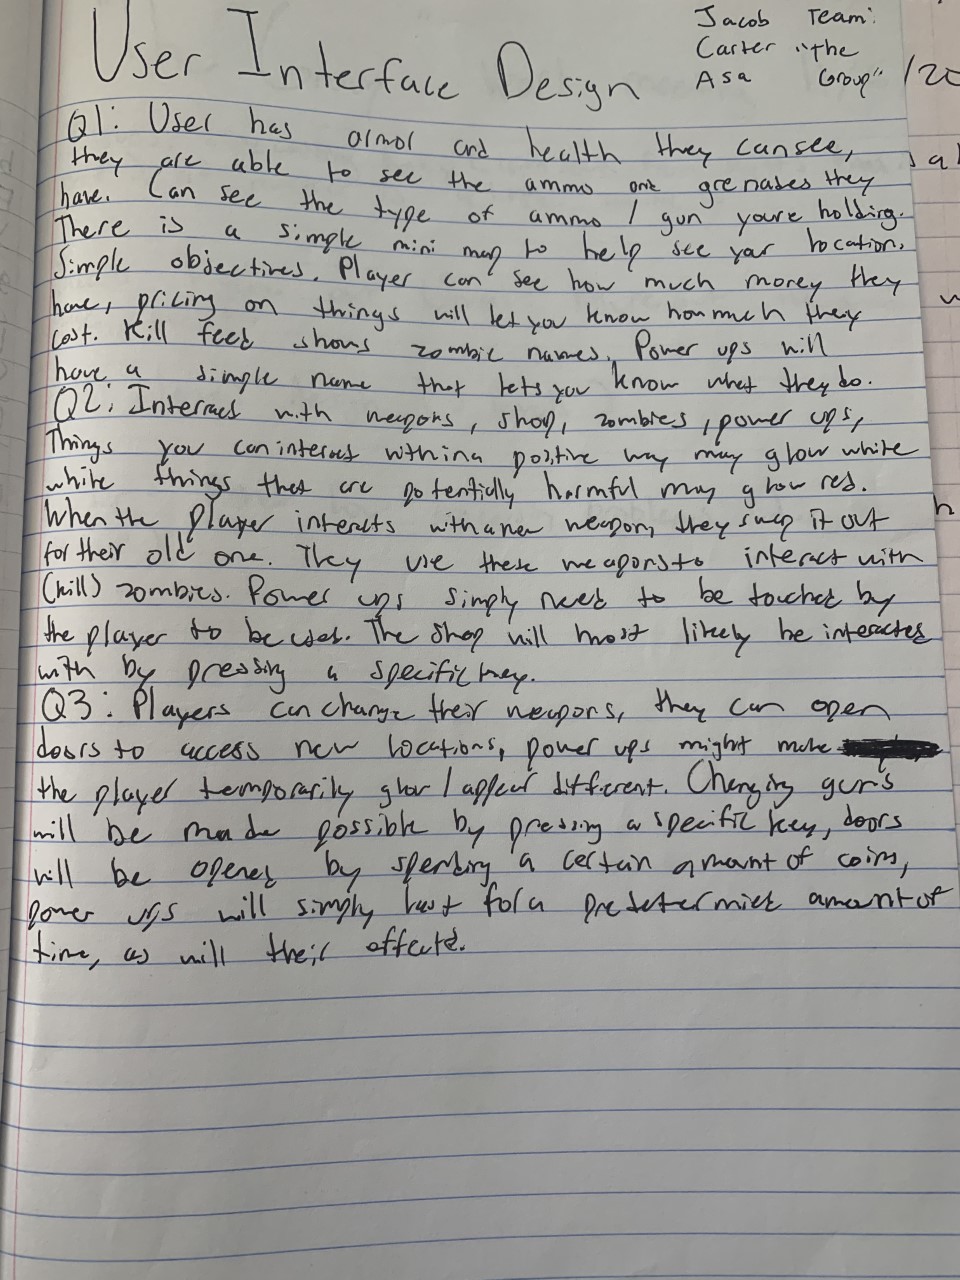 User Interface Design
Jacob Team:
Carter "the
Asa Group" /20
Q1: User has armor and health they can see,
they are able to see the ammo and grenades they
have. Can see the type of ammo / gun youre holding.
There is a simple mini map to help see your location.
Simple objectives. Player can see how much money they
have, pricing on things will let you know how much they
cost. Kill feed shows zombie names. Power ups will
have a simple name that lets you know what they do.
Q2: Interact with weapons, shop, zombies, power ups,
Things you can interact with in a positive way may glow white
while things that are potentially harmful may glow red.
When the player interacts with a new weapon, they swap it out
for their old one. They use these weapons to interact with
(kill) zombies. Power ups simply need to be touched by
the player to be used. The shop will most likely be interacted
with by pressing a specific key.
Q3: Players can change their weapons, they can open
doors to access new locations, power ups might make
the player temporarily glow / appear different. Changing guns
will be made possible by pressing a specific key, doors
will be opened by spending a certain amount of coins,
power ups will simply last for a predetermied amount of
time, as will their effects.